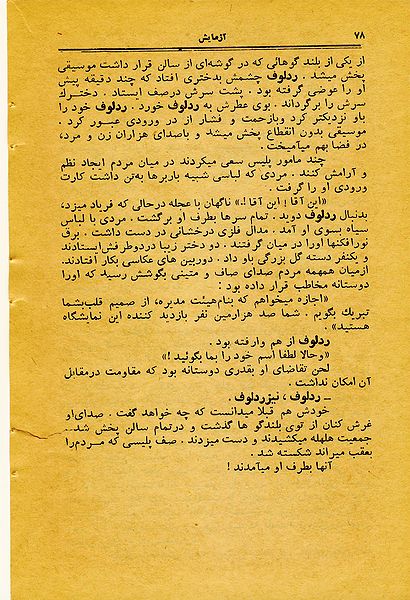 ۷۸
آزمایش
از یکی از بلند گوهائی که در گوشه‌ای از سالن قرار داشت موسیقی
پخش میشد . ردلوف چشمش بدختری افتاد که چند دقیقه پیش
او را عوضی گرفته بود . پشت سرش درصف ایستاد . دخترك
سرش را برگرداند . بوی عطرش به ردلوف خورد . ردلوف خود را
باو نزدیکتر کرد وبازحمت و فشار از در ورودی عبور کرد .
موسیقی بدون انقطاع پخش میشد و باصدای هزاران زن و مرد،
در فضا بهم میآمیخت .
چند مامور پلیس سعی میکردند در میان مردم ایجاد نظم
و آرامش کنند . مردی که لباسی شبیه باربرها به‌تن داشت کارت
ورودی او را گرفت .
«این آقا ! این آقا !» ناگهان با عجله درحالی که فریاد میزد،
بدنبال ردلوف دوید . تمام سرها بطرف او برگشت . مردی با لباس
سیاه بسوی او آمد . مدال فلزی درخشانی در دست داشت . برق
نورافکنها اورا در میان گرفتند . دو دختر زیبا دردوطرفش‌ایستادند
و یکنفر دسته گل بزرگی باو داد . دوربین های عکاسی بکار افتادند.
ازمیان همهمه مردم صدای صاف و متینی بگوشش رسید که اورا
دوستانه مخاطب قرار داده بود :
«اجازه میخواهم که بنام‌هیئت مدیره، از صمیم قلب‌بشما
تبریك بگویم . شما صد هزارمین نفر بازدید کننده این نمایشگاه
هستید» .
ردلوف از هم وارفته بود .
«وحالا لطفا اسم خود را بما بگوئید !»
لحن تقاضای او بقدری دوستانه بود که مقاومت درمقابل
آن امکان نداشت .
ــ ردلوف ، نیزردلوف .
خودش هم قبلا میدانست که چه خواهد گفت . صدای‌او
غرش کنان از توی بلندگو ها گذشت و درتمام سالن پخش شد..
جمعیت هلهله میکشیدند و دست میزدند . صف پلیسی که مردم‌را
بعقب میراند شکسته شد .
آنها بطرف او میآمدند !